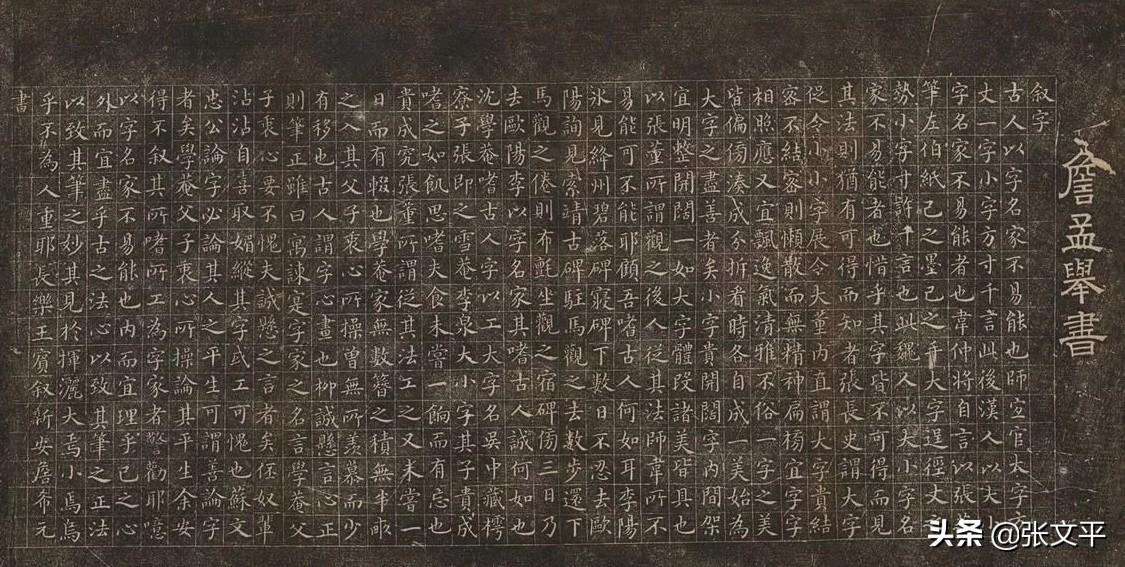 詹孟舉書
叙字
古人以字名家不易能也師宜官大字
丈一字小字方寸千言此後漢人以大
字名家不易能者也韋仲將自言以張
筆左伯紙己之墨己之手大字逞徑丈
勢小字寸許千言也此魏人以大小字名
家不易能者也惜乎其字皆不可得而見
其法則猶有可得而知者張長史謂大字
促令小小字展令大董内直謂大字貴結
容不結容則懶散而無精神扁榜宜字字
相照應又宜飄逸氣清雅不俗一字之美
皆偏傍湊成分拆看時各自成一美始為
大字之盡善者矣小字貴開闊字内間架
宜明整開闊一如大字體段諸美皆具也
以張董所謂觀之後人從其法師韋所不
易能可不能耶顧吾嗜古人何如耳李陽
氷見絳州碧落碑寢碑下數日不忍去歐
陽詢見索靖古碑駐馬觀之去數步還下
馬觀之倦則布氈坐觀之宿碑傍三日乃
去歐陽李以字名家其嗜古人誠何如也
沈學菴嗜古人字以工大字名吳中藏樗
寮子張即之雪菴李衮大小字其子貴成
嗜之如飢思嗜夫食未嘗一餉而有忘也
貴成究張董所謂從其法工之又未嘗一
日而有暇也學菴家無數簪之積無半畝
之入其父子衷心所操曾無所羨慕而少
有移也古人謂字心畫也柳誠懸言心正
則筆正雖曰寓諫寔字家之名言學菴父
子衷心要不愧夫誠懸之言者矣侄奴輩
沾沾自喜取媚縱其字或工可愧也蘇文
忠公論字必論其人之平生可謂善論字
者矣學菴父子衷心所操論其平生余安
得不叙其所嗜所工為字家者警勸耶噫
以字名家不易能也内而宜理乎己之心
外而宜盡乎古之法心以致其筆之正法
以致其筆之妙其見於揮灑大焉小焉烏
乎不為人重耶長樂王賓叙新安詹希元
書
头条 @张文平